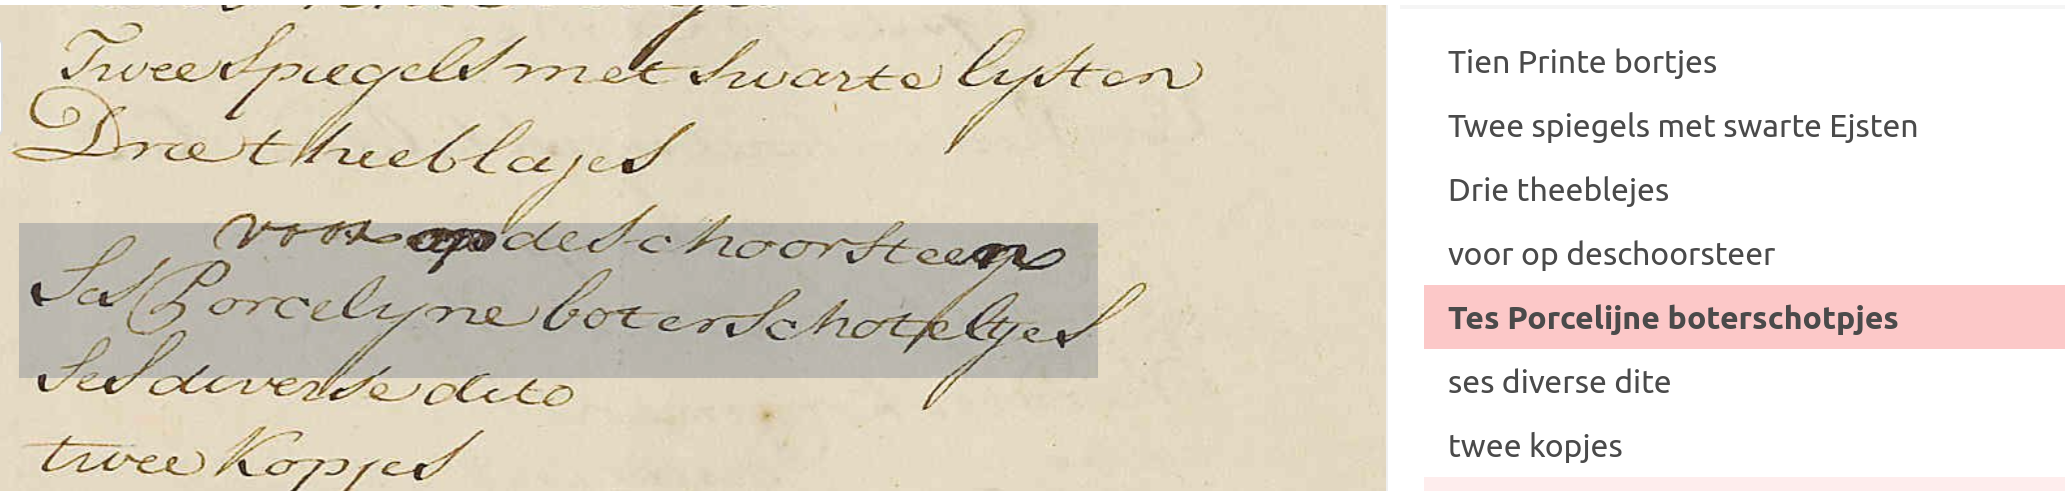 Twee spiegels met swarte lysten
Drie theeblajes
voor op de schoorsteen
Ses Porcelyne boterschoteltjes
ses diverse dito
twee kopjes
Tien Printe bortjes
Twee spiegels met swarte Ejsten
Drie theeblejes
voor op deschoorsteer
Tes Porcelijne boterschotpjes
ses diverse dite
twee kopjes